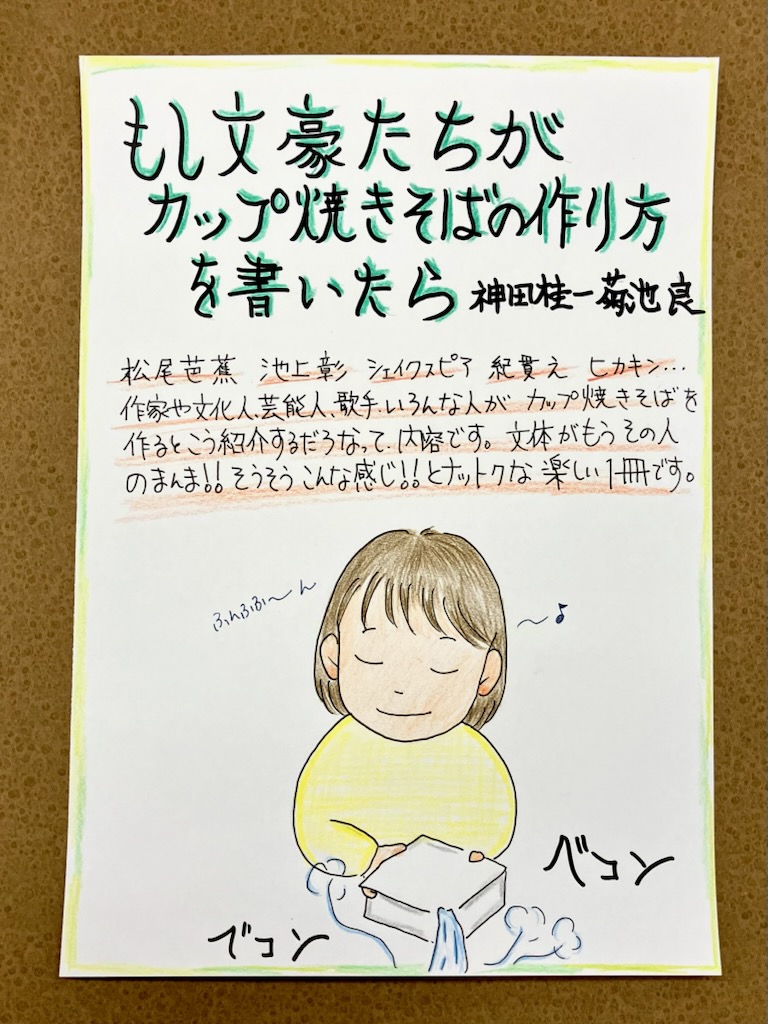 もし文豪たちが
カップ焼きそばの作り方
を書いたら 神田桂一 菊池良
松尾芭蕉 池上彰 シェイクスピア 紀貫え ヒカキン…
作家や文化人、芸能人、歌手、いろんな人が カップ焼きそばを
作るとこう紹介するだろなって、内容です。文体がもう その人
のまんま!! そうそう こんな感じ!! とナットクな 楽しい 1冊です。
ふんふふ〜ん
〜♪
べコン
べコン